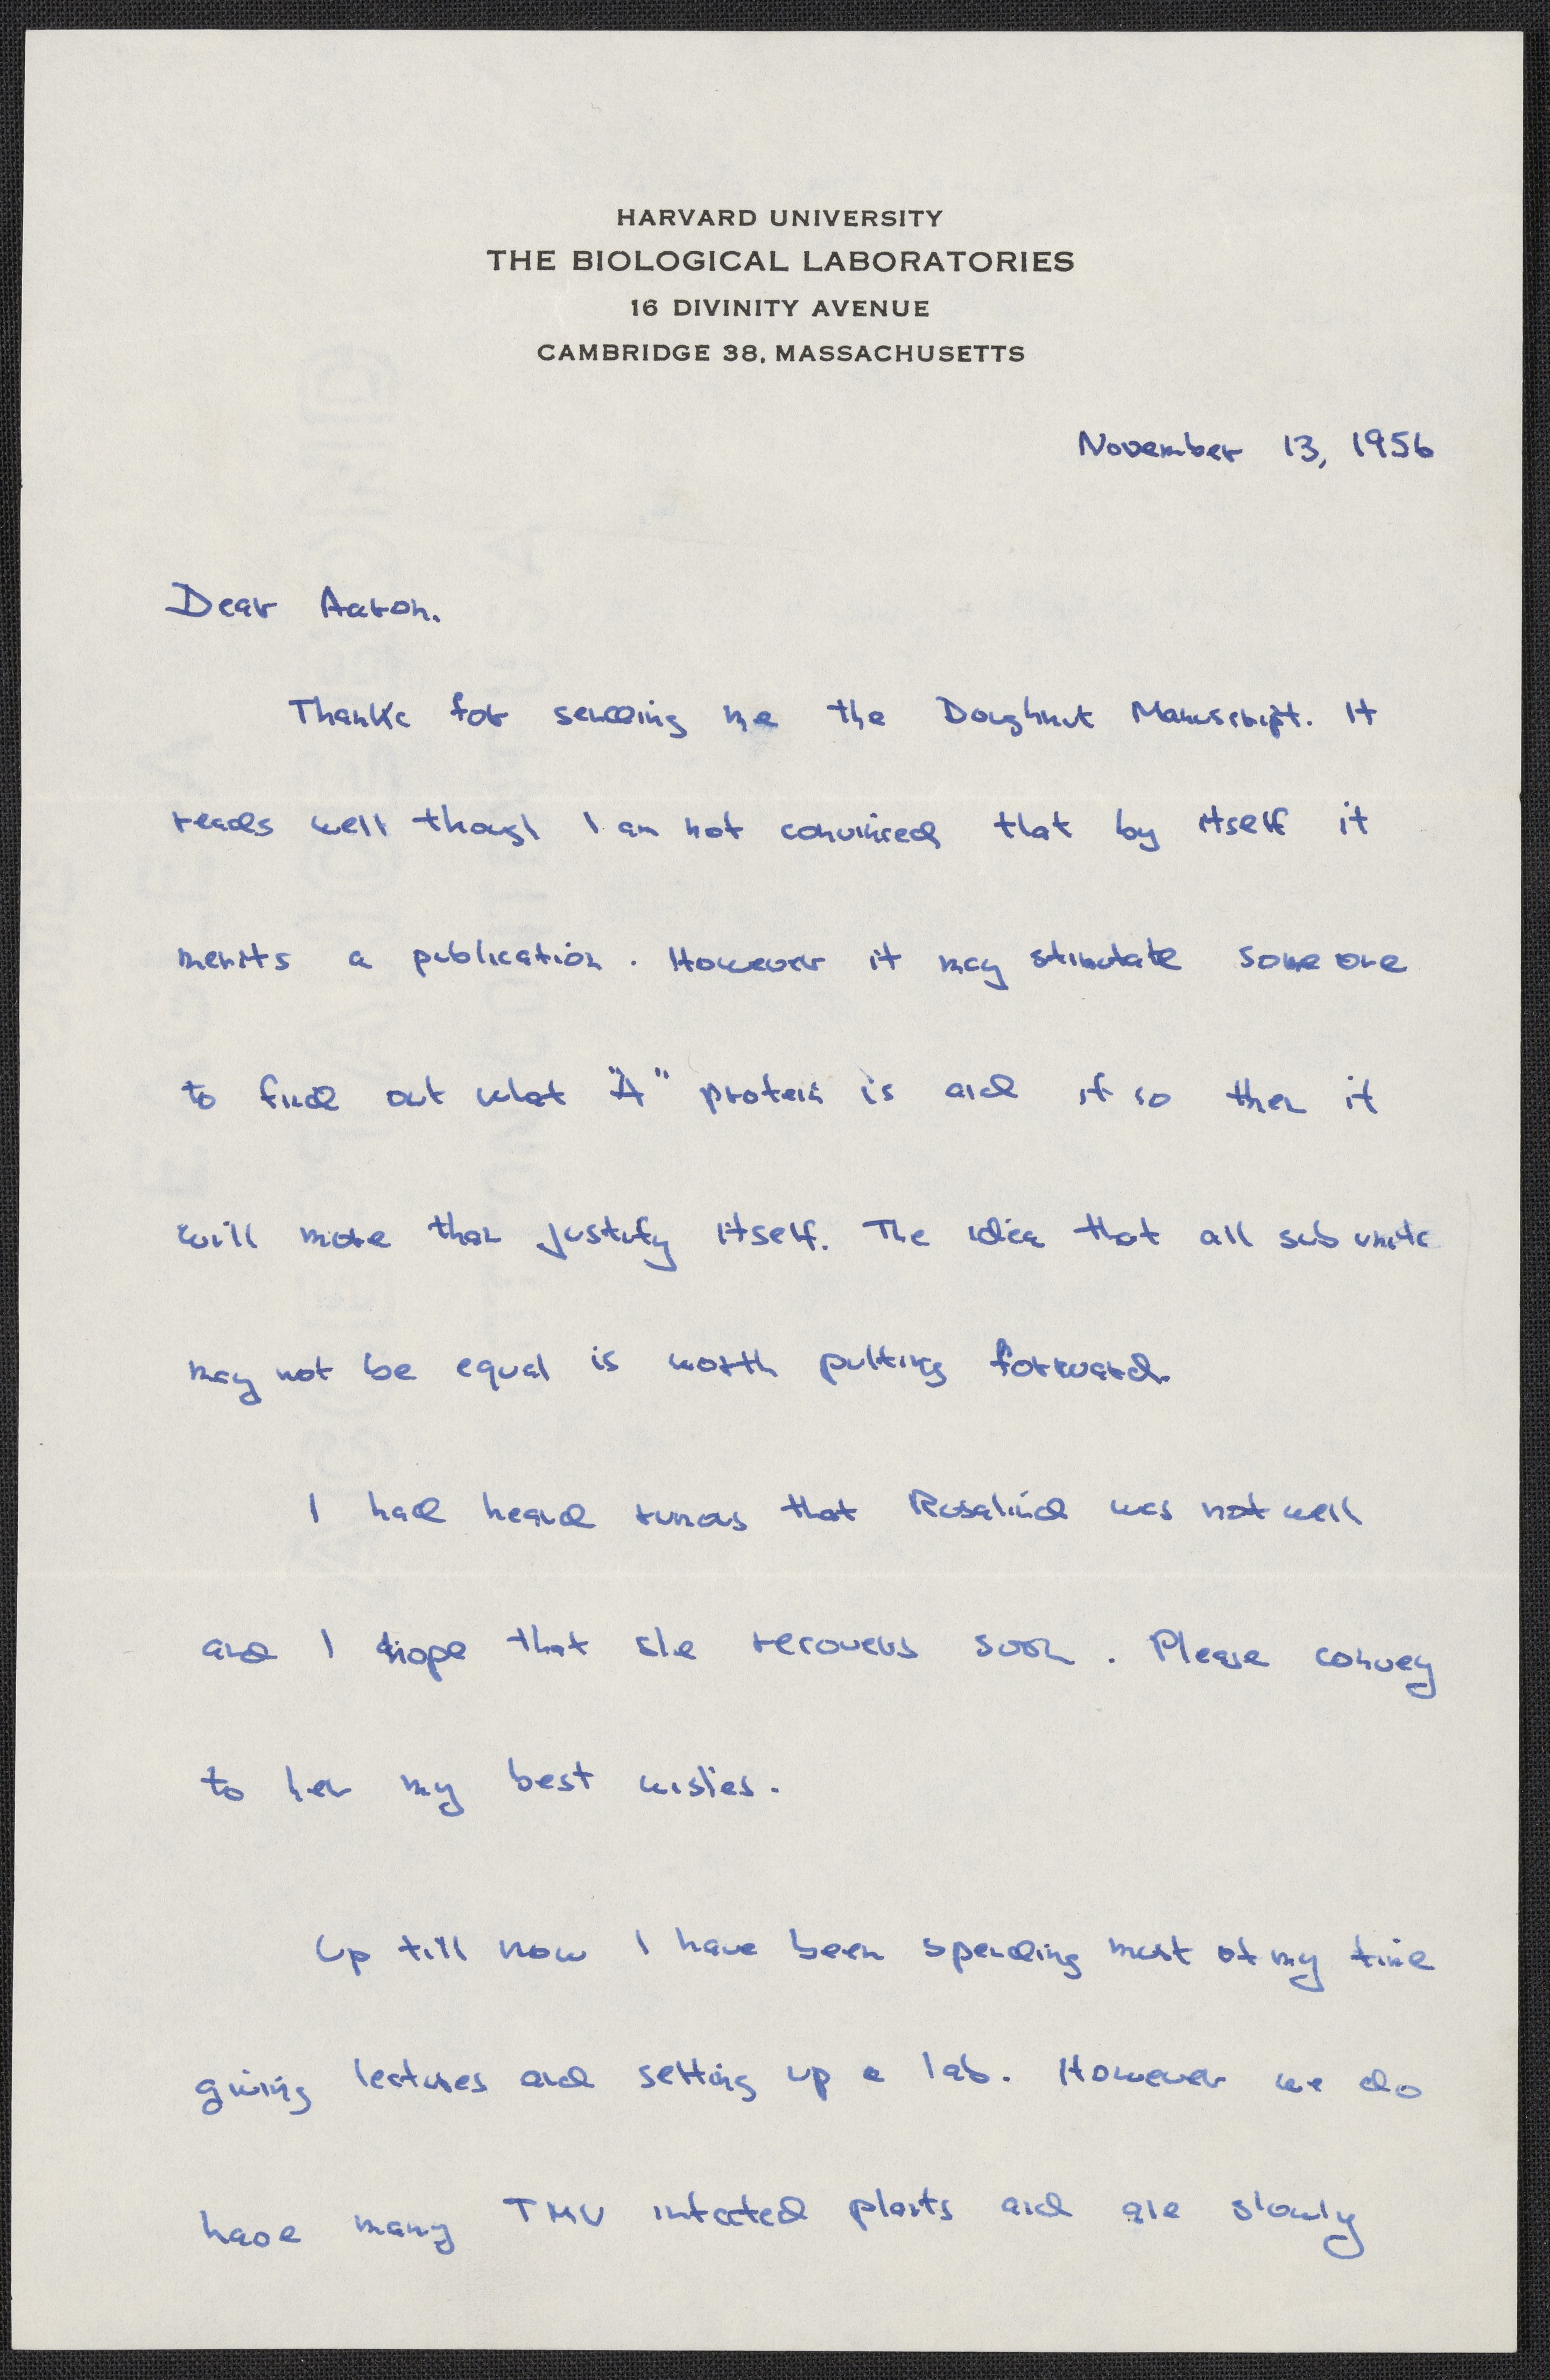 HARVARD UNIVERSITY
THE BIOLOGICAL LABORATORIES
16 DIVINITY AVENUE
CAMBRIDGE 38, MASSACHUSETTS
November 13, 1956
Dear Aaron.
Thanks for sending me the Doughnut Manuscript. It
reads well though I am not convinced that by itself it
merits a publication. However it may stimulate some one
to find out what "A" protein is and if so then it
will more than justify itself. The idea that all sub units
may not be equal is worth putting forward.
I had heard rumors that Rosalind was not well
and I hope that she recovers soon. Please convey
to her my best wishes.
Up till now I have been spending most of my time
giving lectures and setting up a lab. However we do
have many TMV infected plants and are slowly